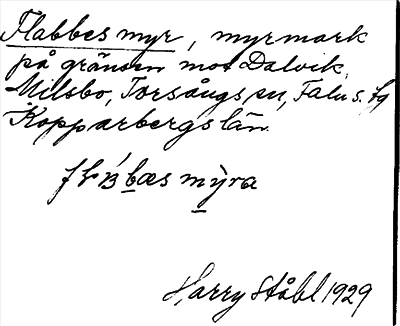 Flabbesmyr, myrmark
på gränsen mot Dalvik,
Milsbo, Torsångs sn, Falu s. fg
Kopparbergs län.
bæs mỳra
Harry Ståhl 1929